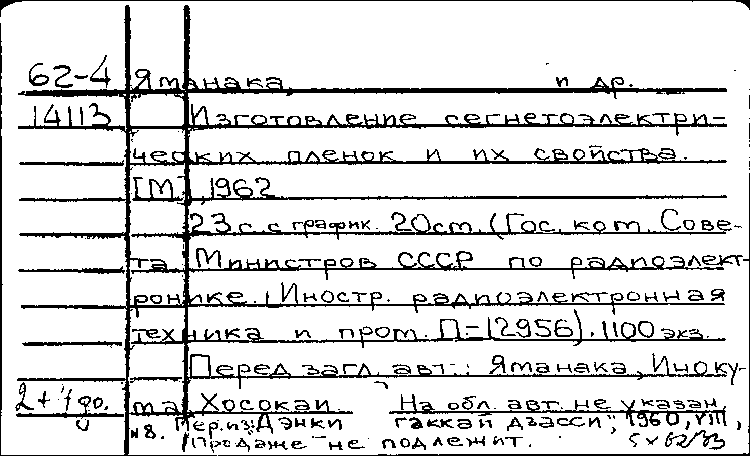 62-4 Яманака, и др.
14113 Изготовление сегнетоэлектри-
ческих пленок и их свойства.
[М], 1962
23 с. с график. 20 cm. (Гос. ком. Сове-
та Министров СССР по радиоэлект-
ронике. Иностр. радиоэлектронная
техника и пром. П-12956). 1100 экз.
Перед загл. авт.: Яманака, Иноку-
2 + 1 до. та, Хосокаи На обл. авт. не указан.
Пер. из: "Дэнки гаккай дзасси", 1960, VIII,
№ 8. Продаже не подлежит.